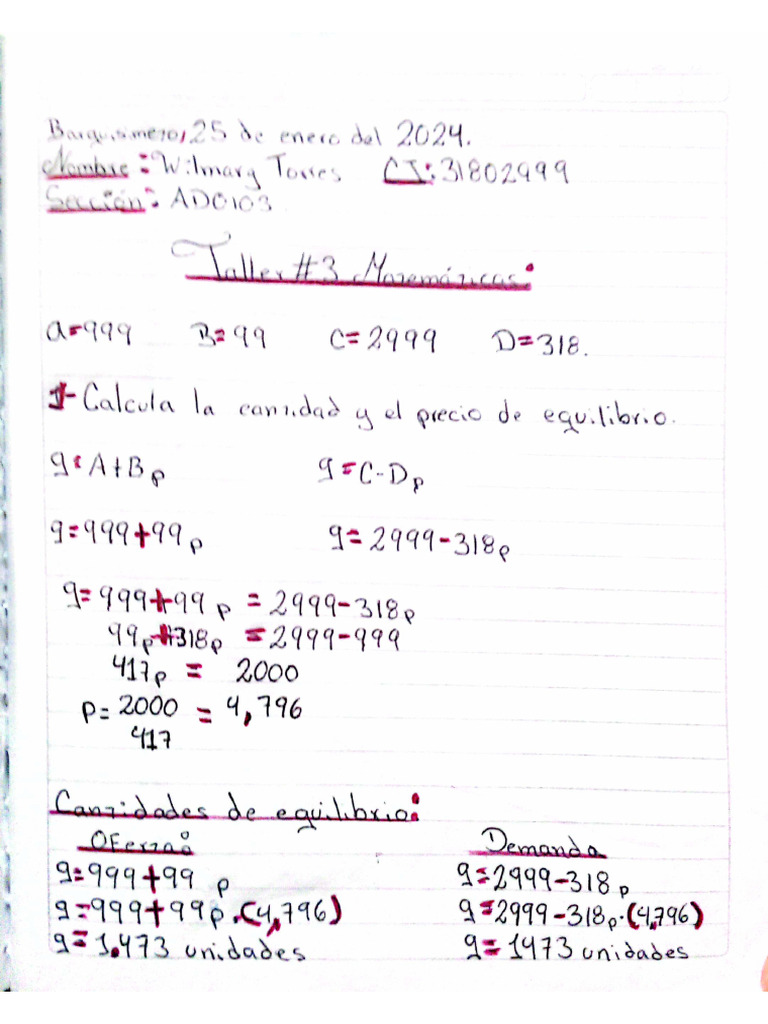 Barquisimeto, 25 de enero del 2024.
Nombre: Wilmary Torres CI: 31802999
Sección: AD0103
Taller #3 Matemáticas:
A=999 B=99 C=2999 D=318.
1- Calcula la cantidad y el precio de equilibrio.
q=A+Bp q=C-Dp
q=999+99p q=2999-318p
q=999+99p = 2999-318p
99p+318p = 2999-999
417p = 2000
p=2000 = 4,796
417
Cantidades de equilibrio:
Oferta: Demanda
q=999+99 p q=2999-318p
q=999+99p.(4,796) q=2999-318p.(4,796)
q=1.473 unidades q=1473 unidades